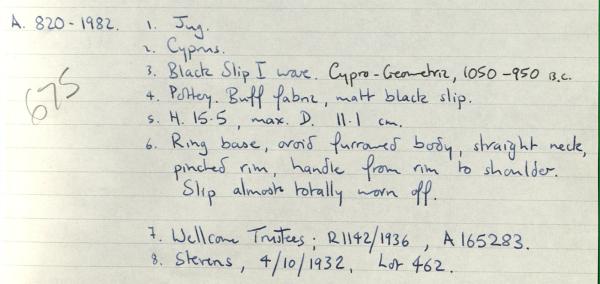 A. 820-1982. 1. Jug.
2. Cyprus.
3. Black Slip I ware. Cypro-Geometric, 1050-950 B.C.
4. Pottery. Buff fabric, matt black slip.
5. H. 15.5, max. D. 11.1 cm.
675
6. Ring base, ovoid furrowed body, straight neck,
pinched rim, handle from rim to shoulder.
Slip almost totally worn off.
7. Wellcome Trustees; R1142/1936, A165283.
8. Stevens, 4/10/1932, Lot 462.